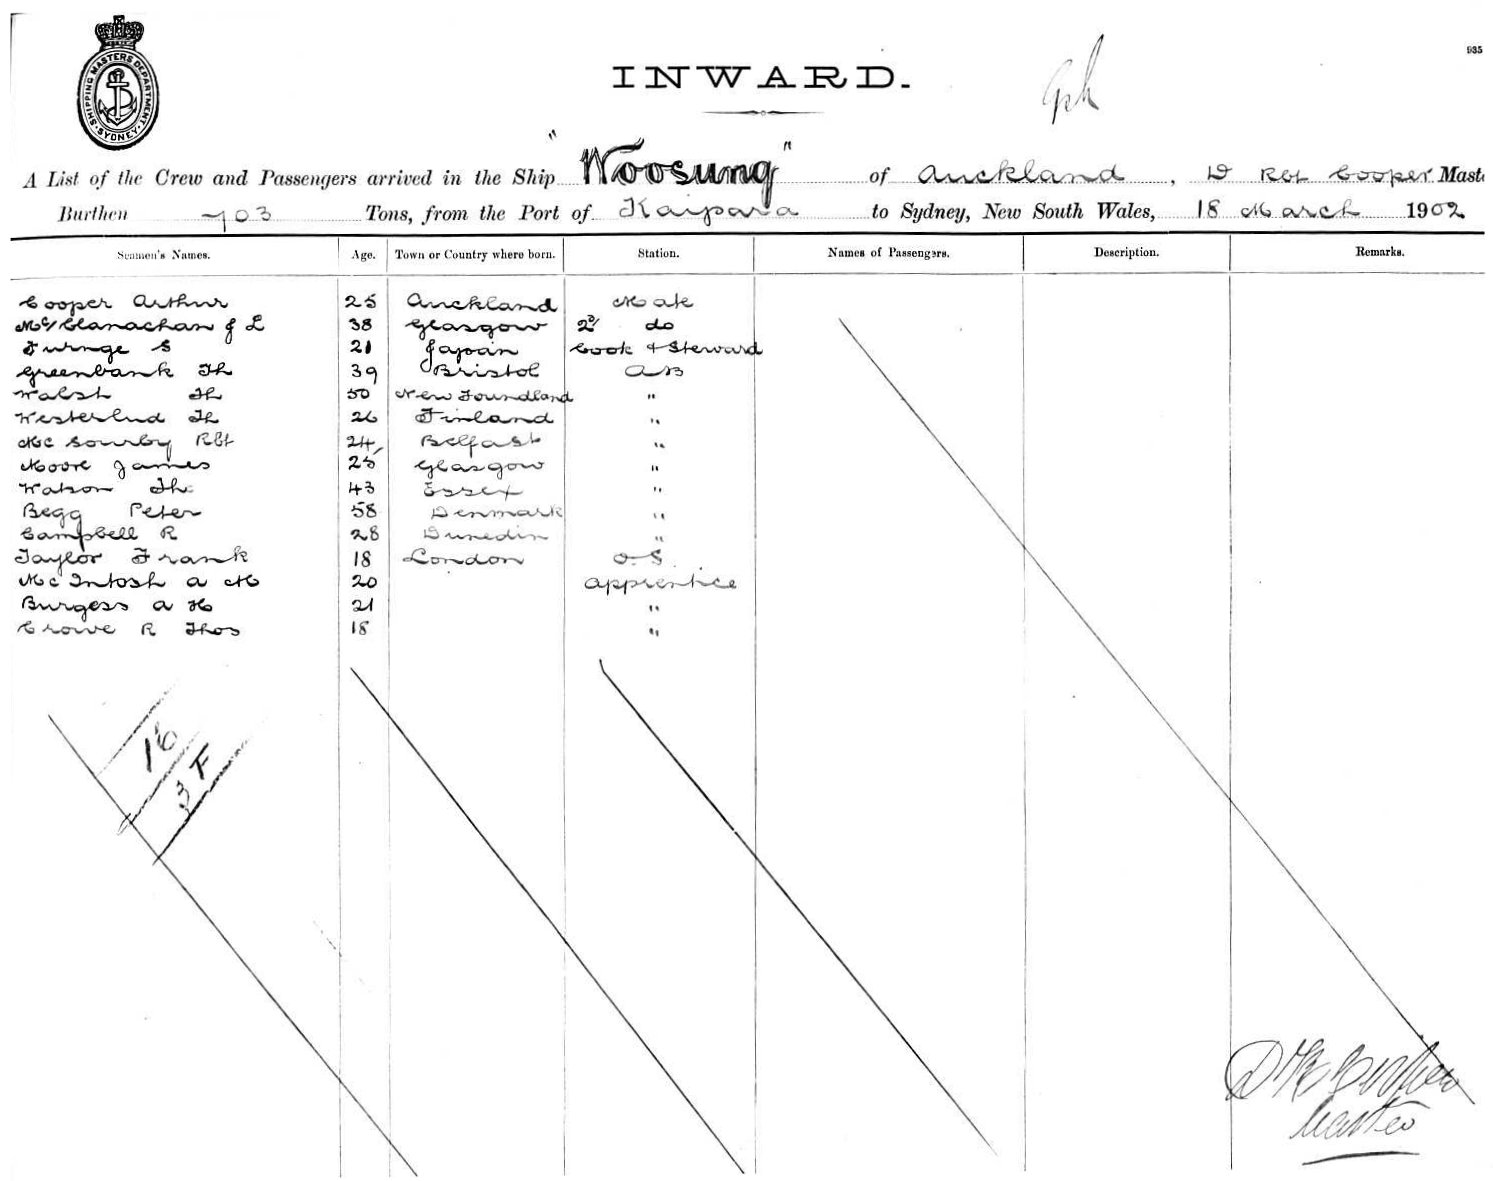 935
SHIPPING MASTERS DEPARTMENT
SYDNEY
INWARD.
A List of the Crew and Passengers arrived in the Ship "Woosung" of Auckland, D Rbt Cooper Maste
Burthen 703 Tons, from the Port of Kaipara to Sydney, New South Wales, 18 March 1902
Seamen's Names. Age. Town or Country where born. Station. Names of Passengers. Description. Remarks.
Cooper Arthur 25 Auckland Mate
McClanachan J L 38 Glasgow 2d do
Furnge S 21 Japan Cook & Steward
Greenbank Th 39 Bristol AB
Walsh Th 50 New Foundland "
Westerlud Th 26 Finland "
Mc Sourby Rbt 24 Belfast "
Moore James 25 Glasgow "
Watson Th 43 Essex "
Begg Peter 58 Denmark "
Campbell R 28 Dunedin "
Taylor Frank 18 London O.S.
Mc Intosh A M 20 apprentice
Burgess A H 21 "
Crowe R Thos 18 "
16
3 F
D R Cooper
Master